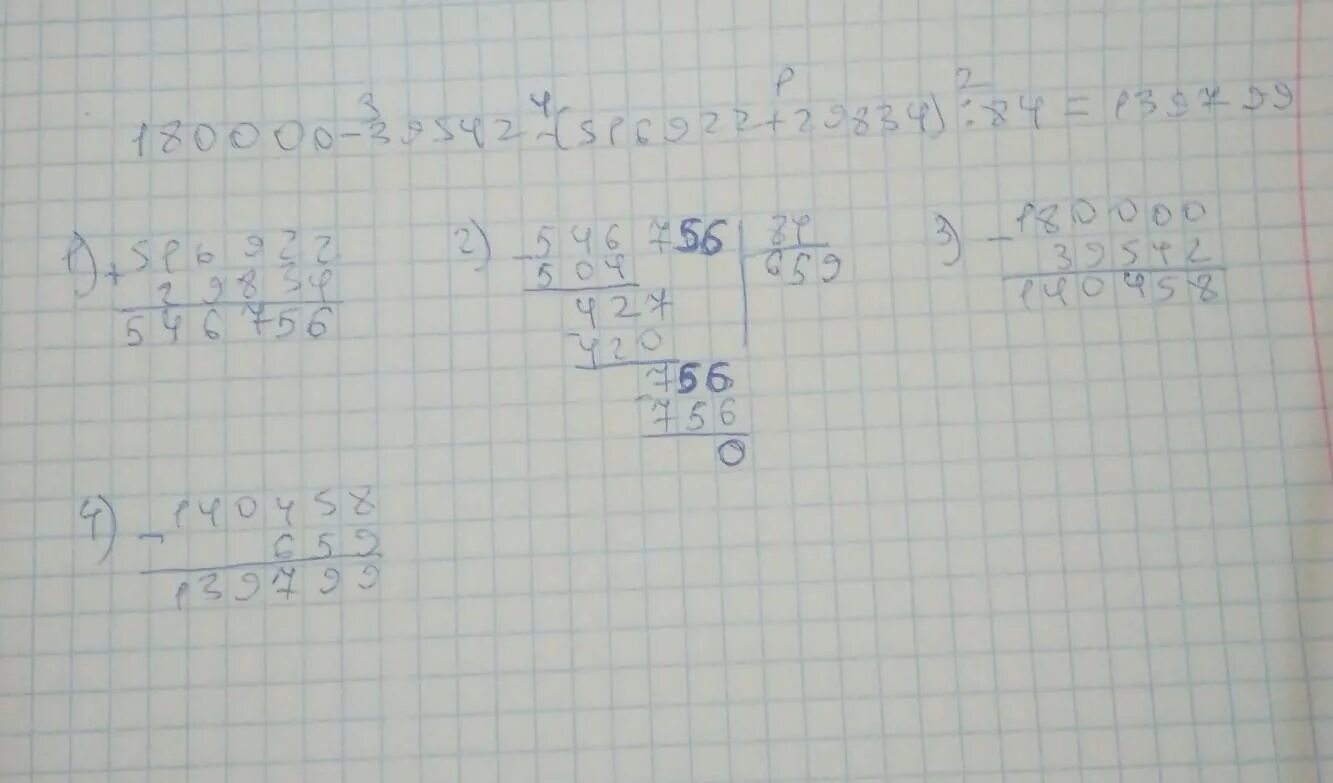 3 4 1 2
180000-39542-(516922+29834):84=139799
1) + 516922
29834
546756
2) - 546756 84
504 659
427
- 420
756
- 756
0
3) - 180000
39542
140458
4) - 140458
659
139799